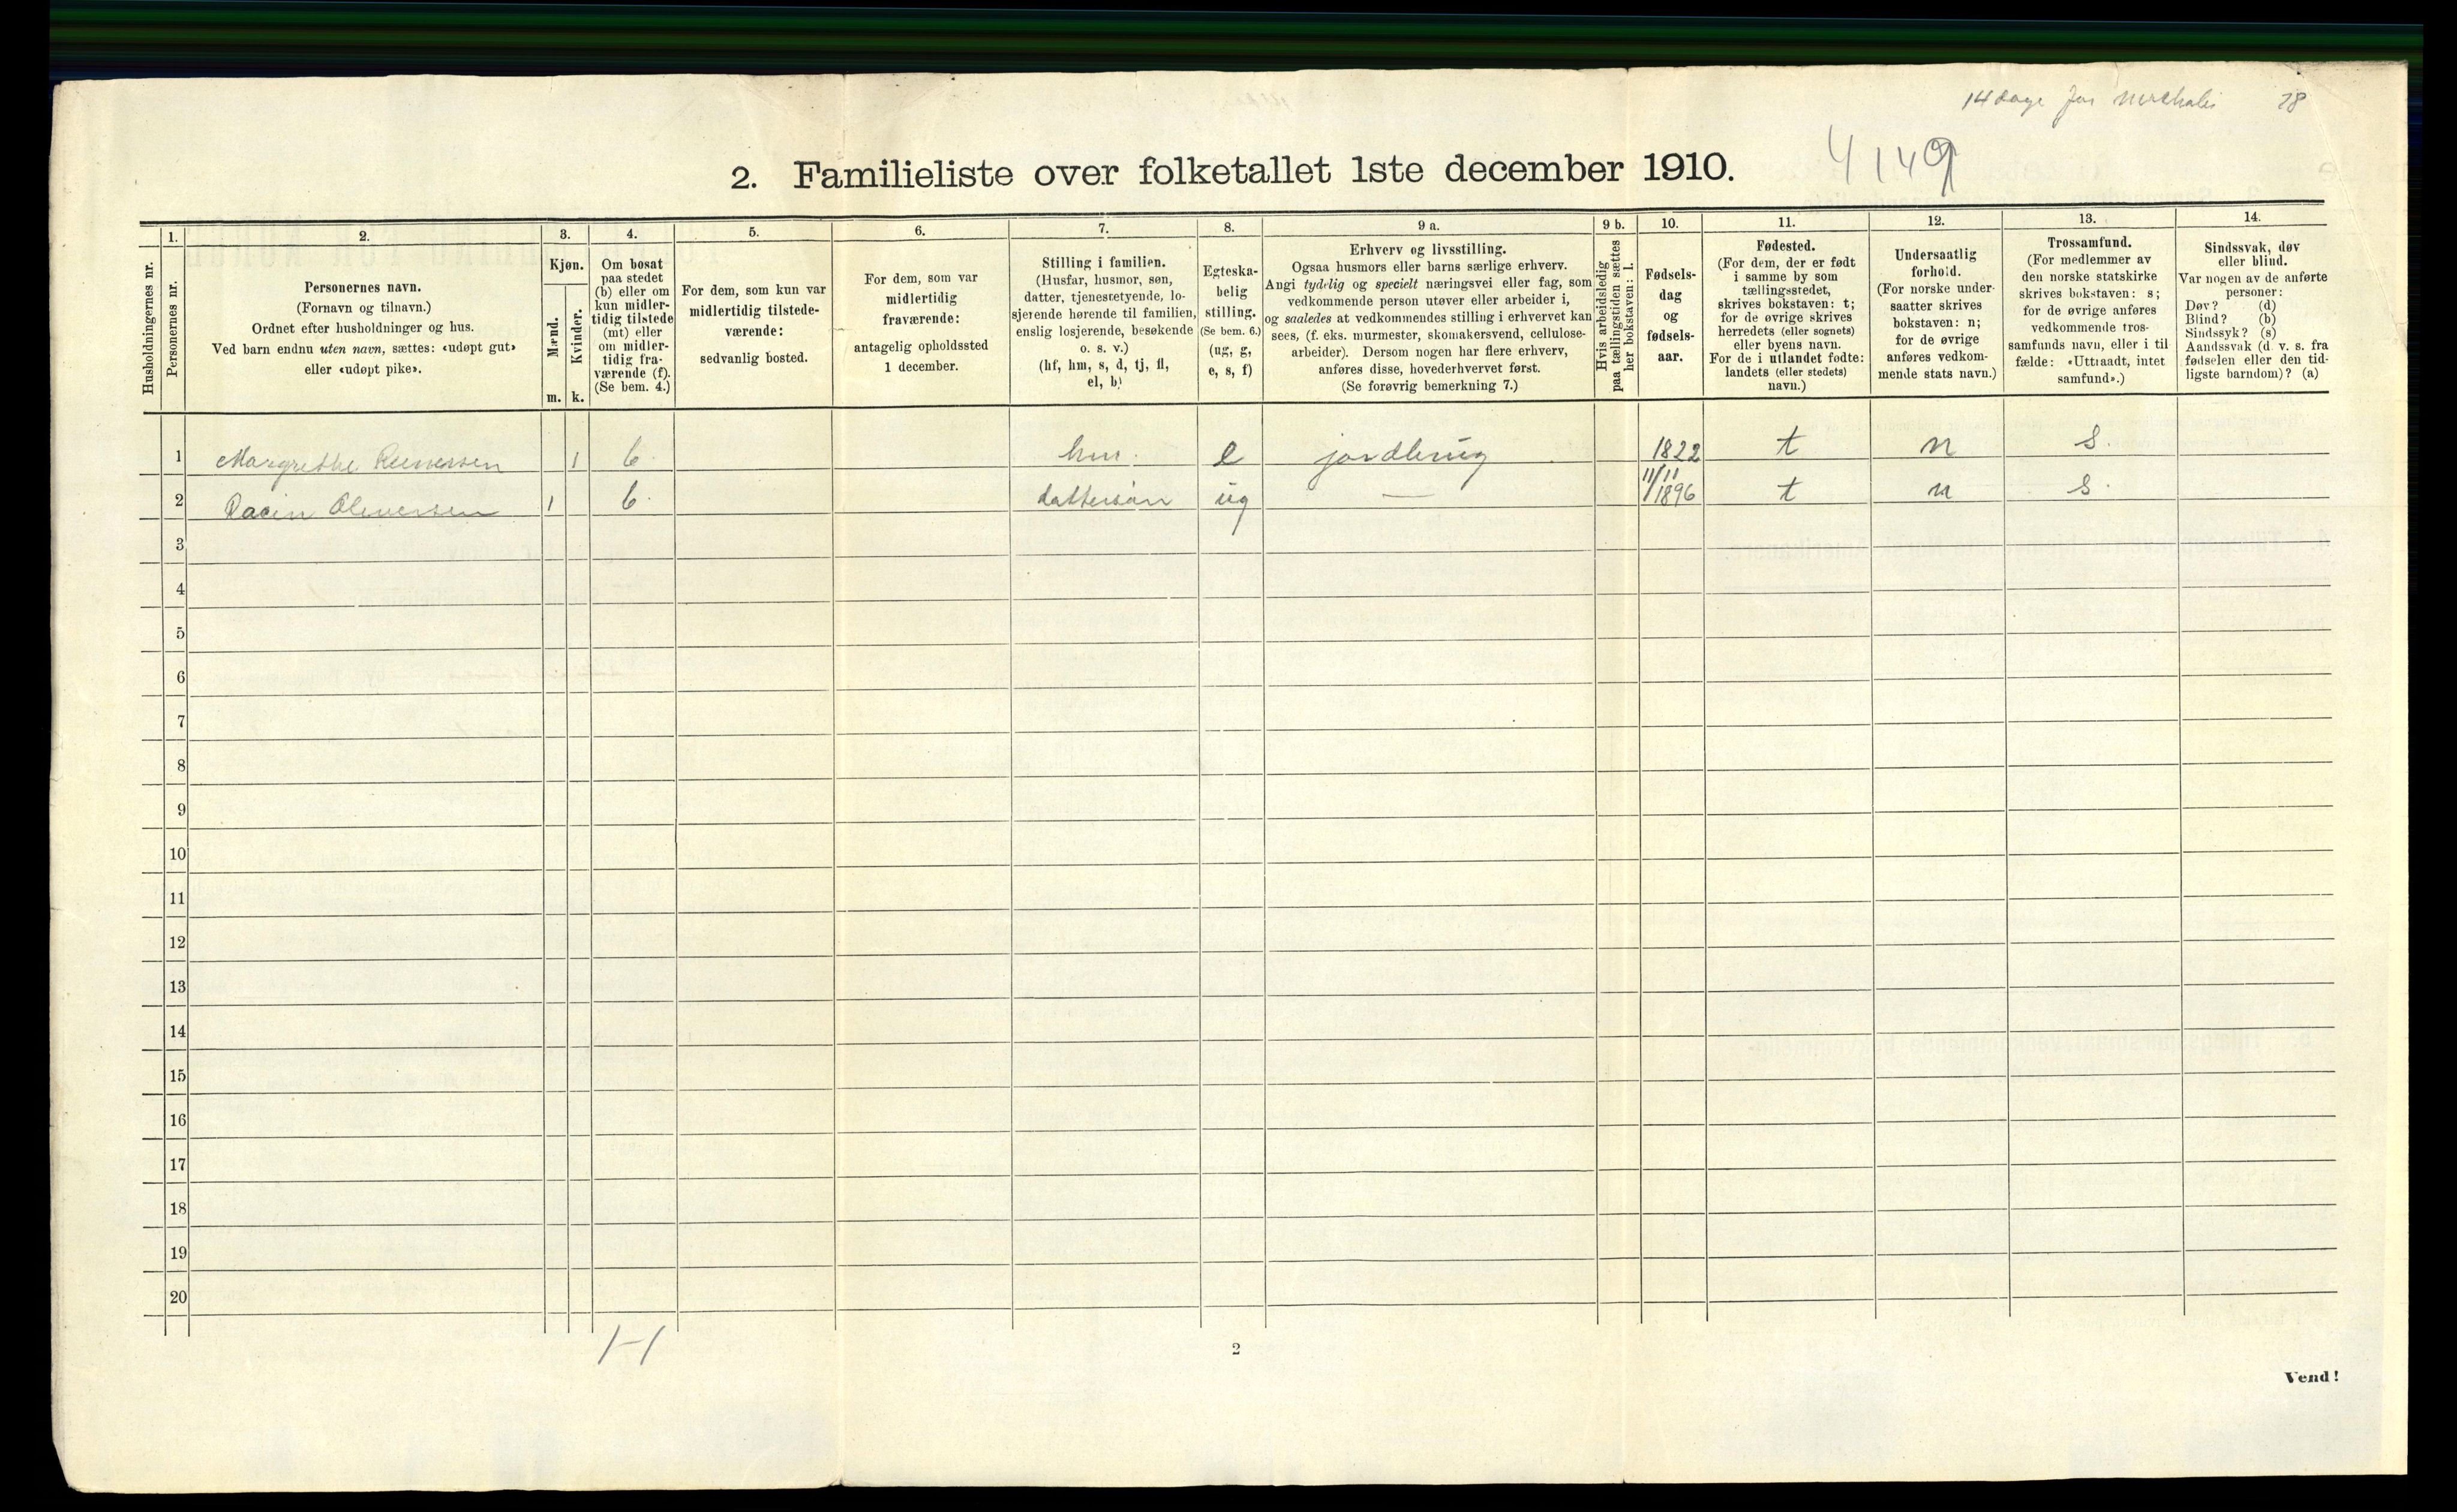 14 dage før 78
2. Familieliste over folketallet 1ste december 1910. 4149
Husholdningernes nr.
1.
Personernes nr.
2.
Personernes navn.
(Fornavn og tilnavn.)
Ordnet efter husholdninger og hus.
Ved barn endnu uten navn, sættes: «udøpt gut»
eller «udøpt pike».
3.
Kjøn.
Mænd.
Kvinder.
m. k.
4.
Om bosat
paa stedet
(b) eller om
kun midler-
tidig tilstede
(mt) eller
om midler-
tidig fra-
værende (f).
(Se bem. 4.)
5.
For dem, som kun var
midlertidig tilstede-
værende:
sedvanlig bosted.
6.
For dem, som var
midlertidig
fraværende:
antagelig opholdssted
1 december.
7.
Stilling i familien.
(Husfar, husmor, søn,
datter, tjenestetyende, lo-
sjerende hørende til familien,
enslig losjerende, besøkende
o. s. v.)
(hf, hm, s, d, tj, fl,
el, b)
8.
Egteska-
belig
stilling.
(Se bem. 6.)
(ug, g,
e, s, f)
9 a.
Erhverv og livsstilling.
Ogsaa husmors eller barns særlige erhverv.
Angi tydelig og specielt næringsvei eller fag, som
vedkommende person utøver eller arbeider i,
og saaledes at vedkommendes stilling i erhvervet kan
sees, (f. eks. murmester, skomakersvend, cellulose-
arbeider). Dersom nogen har flere erhverv,
anføres disse, hovederhvervet først.
(Se forøvrig bemerkning 7.)
9 b.
Hvis arbeidsledig
paa tællingstiden sættes
her bokstaven: l.
10.
Fødsels-
dag
og
fødsels-
aar.
11.
Fødested.
(For dem, der er født
i samme by som
tællingsstedet,
skrives bokstaven: t;
for de øvrige skrives
herredets (eller sognets)
eller byens navn.
For de i utlandet fødte:
landets (eller stedets)
navn.)
12.
Undersaatlig
forhold.
(For norske under-
saatter skrives
bokstaven: n;
for de øvrige
anføres vedkom-
mende stats navn.)
13.
Trossamfund.
(For medlemmer av
den norske statskirke
skrives bokstaven: s;
for de øvrige anføres
vedkommende tros-
samfunds navn, eller i til
fælde: «Uttraadt, intet
samfund».)
14.
Sindssvak, døv
eller blind.
Var nogen av de anførte
personer:
Døv? (d)
Blind? (b)
Sindssyk? (s)
Aandssvak (d. v. s. fra
fødselen eller den tid-
ligste barndom)? (a)
1 Margrethe 1 b. hm. e jordbrug 1822 t n s.
2 Olewersen 1 b. dattersøn ug — 11/11 1896 t n s.
3
4
5
6
7
8
9
10
11
12
13
14
15
16
17
18
19
20
1-1
2
Vend!